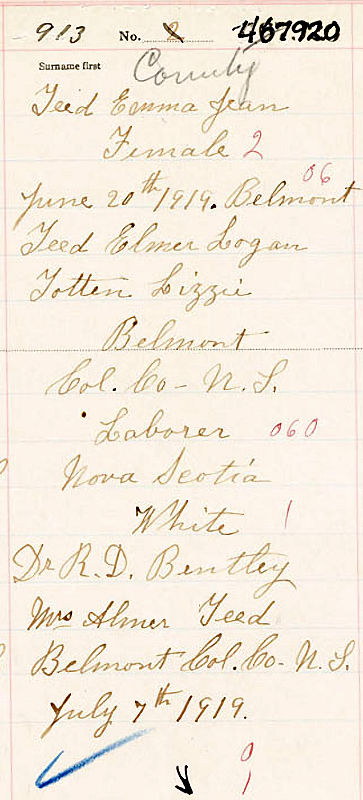 913 No. 2 467920
Surname first
County
Teed Emma Jean
Female 2
06
June 20th 1919. Belmont
Teed Elmer Logan
Totten Lizzie
Belmont
Col. Co- N. S.
Laborer 060
Nova Scotia
White 1
Dr R. D. Bentley
Mrs Almer Teed
Belmont Col. Co- N. S.
July 7th 1919.
0
1